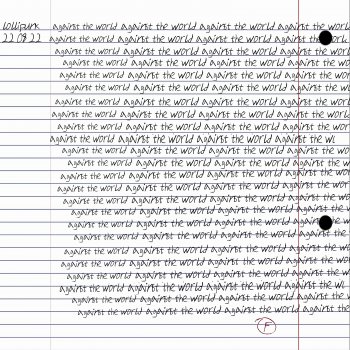 22.08.22
against the world against the world against the world against the world
against the world against the world against the world against the work
against the world against the world against the world against the world
against the world against the world against the world against the wo
against the world against the world against the world against the wor
against the world against the world against the world against the w
against the world against the world against the world against the world
against the world against the world against the world against the world
against the world against the world against the world against the world
against the world against the world against the world against the wi
against the world against the world against the world against the wor
against the world against the world against the world against the w
against the world against the world against the world against the wo
against the world against the world against the world against the world
against the world against the world against the world against the world
against the world against the world against the world against the w
against the world against the world against the world against the wo
against the world against the world against the world against the w
against the world against the world against the world against the wo
against the world against the world against the world against the wo
against the world against the world against the world against the wo
against the world against the world against the world against the wi
against the world against the world against the world against the
against the world against the world against the world against the
F